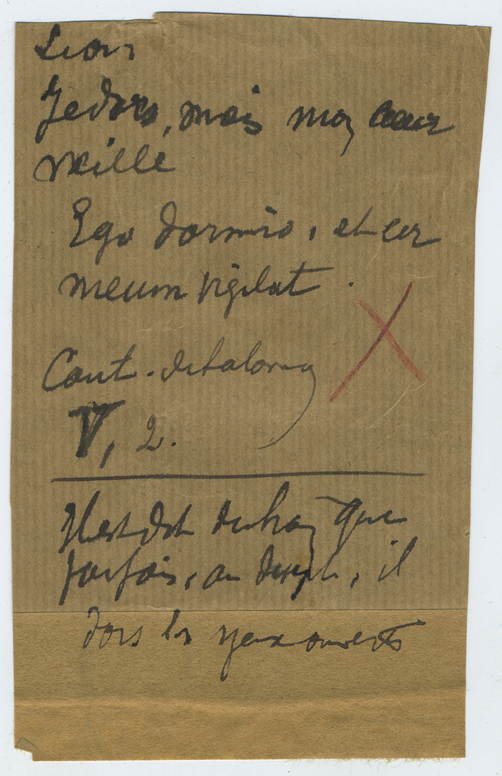 Lion
Je dors, mais mon cœur
veille
Ego dormio, et cor
meum vigilat.
Cant. de Salomon
V, 2.
Il est dit du que
parfois, au , il
dors les yeux ouverts